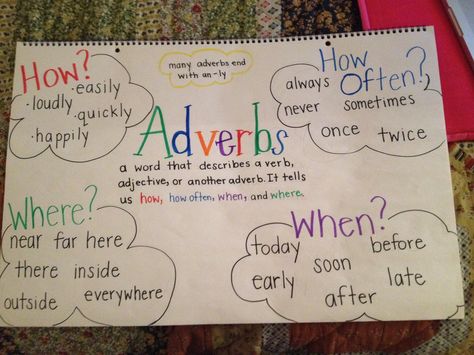 many adverbs end
with an -ly
How?
·easily
·loudly
·quickly
·happily
How
Often?
always
never sometimes
once twice
Adverbs
a word that describes a verb,
adjective, or another adverb. It tells
us how, how often, when, and where.
Where?
near far here
there inside
outside everywhere
When?
today before
soon
early late
after